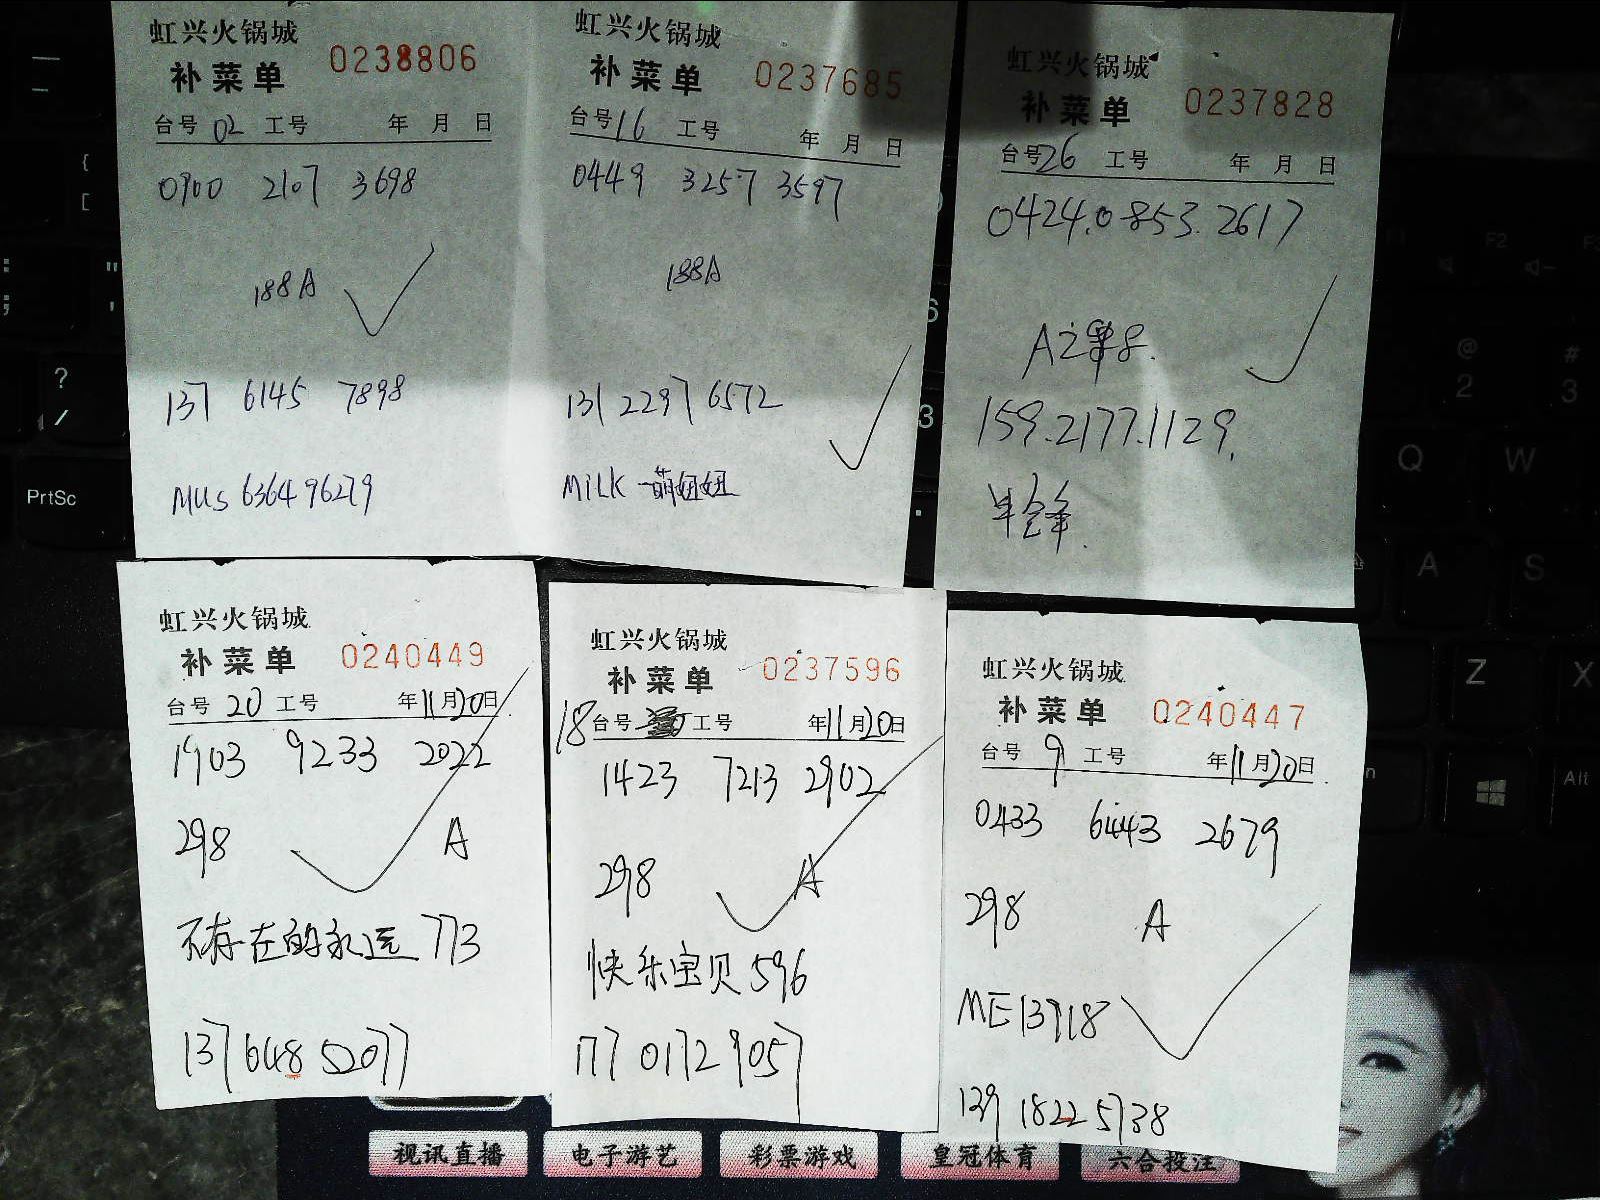 虹兴火锅城
补菜单 0238806
台号 02 工号 年 月 日
0900 2107 3698
188A
137 6145 7898
MUS 636496279
虹兴火锅城
补菜单 0237685
台号 16 工号 年 月 日
0449 3257 3597
188A
131 2297 6572
MILK 萌妞妞
虹兴火锅城
补菜单 0237828
台号 26 工号 年 月 日
0424.0853.2617
159.2177.1129.
虹兴火锅城
补菜单 0240449
台号 20 工号 年 11月 20日
1903 9233 2022
298 A
不存在的永远 773
137 6485 2077
虹兴火锅城
补菜单 0237596
18 台号 工号 年 11月 20日
1423 7213 2902
298 A
快乐宝贝 596
177 0172 9057
虹兴火锅城
补菜单 0240447
台号 9 工号 年 11月 20日
0433 6443 2679
298 A
ME13918
139 1822 5738
PrtSc
Q W
A S
Z X
Alt
视讯直播 电子游艺 彩票游戏 皇冠体育 六合投注